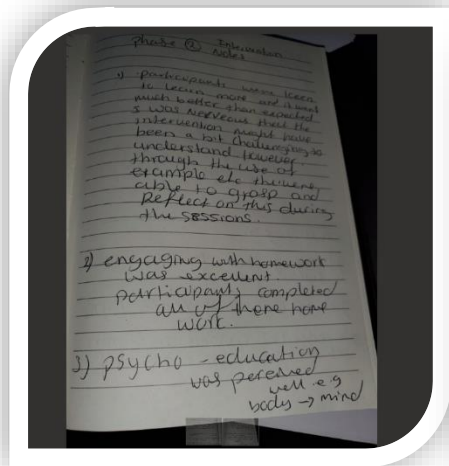 Phase ② Intervention
Notes
1) participants were keen
to learn more and it went
much better than expected
I was nerveous that the
intervention might have
been a bit challenging to
understand however
through the use of
example etc they were
able to grasp and
Reflect on this during
the sessions.
2) engaging with homework
was excellent.
participants completed
all of there home
work.
3) psycho-education
was perceived
well e.g
body → mind